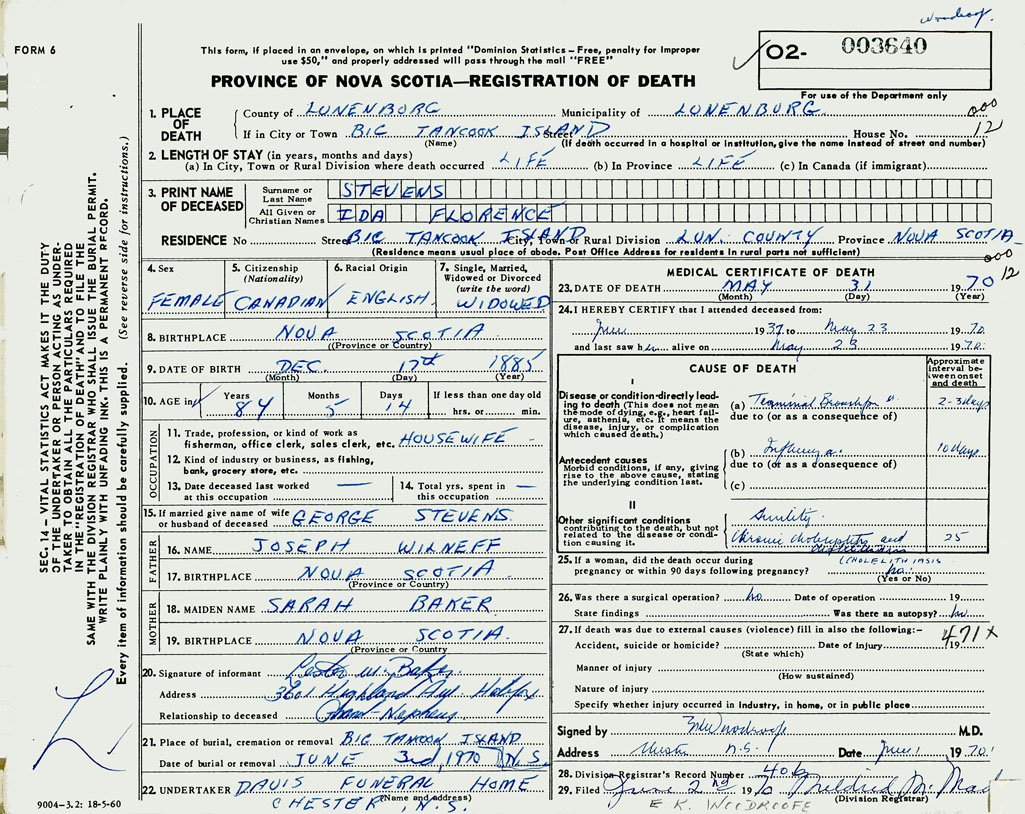 Woodroof.
FORM 6
This form, if placed in an envelope, on which is printed "Dominion Statistics – Free, penalty for improper
use $50," and properly addressed will pass through the mail "FREE"
O2- 003640
PROVINCE OF NOVA SCOTIA—REGISTRATION OF DEATH
For use of the Department only
1. PLACE OF DEATH
County of LUNENBURG Municipality of LUNENBURG. 000
If in City or Town BIG TANCOOK ISLAND Street House No. 12
(Name) (If death occurred in a hospital or institution, give the name instead of street and number)
2. LENGTH OF STAY (in years, months and days)
(a) In City, Town or Rural Division where death occurred LIFE (b) In Province LIFE (c) In Canada (if immigrant)
3. PRINT NAME OF DECEASED
Surname or Last Name STEVENS
All Given or Christian Names IDA FLORENCE
RESIDENCE No Street BIG TANCOOK ISLAND City, Town or Rural Division LUN. COUNTY Province NOVA SCOTIA
(Residence means usual place of abode. Post Office Address for residents in rural parts not sufficient) 000
12
4. Sex FEMALE
5. Citizenship (Nationality) CANADIAN
6. Racial Origin ENGLISH
7. Single, Married, Widowed or Divorced (write the word) WIDOWED
8. BIRTHPLACE NOVA SCOTIA
(Province or Country)
9. DATE OF BIRTH DEC. 17th 1885
(Month) (Day) (Year)
10. AGE in Years 84 Months 5 Days 14 If less than one day old hrs. or min.
OCCUPATION
11. Trade, profession, or kind of work as
fisherman, office clerk, sales clerk, etc. HOUSEWIFE
12. Kind of industry or business, as fishing,
bank, grocery store, etc.
13. Date deceased last worked at this occupation —
14. Total yrs. spent in this occupation —
15. If married give name of wife
or husband of deceased GEORGE STEVENS.
FATHER
16. NAME JOSEPH WILNEFF
17. BIRTHPLACE NOVA SCOTIA
(Province or Country)
MOTHER
18. MAIDEN NAME SARAH BAKER
19. BIRTHPLACE NOVA SCOTIA.
(Province or Country)
20. Signature of informant Lester W. Baker
Address 3601 Highland Ave Halifax
Relationship to deceased Grand-Nephew
21. Place of burial, cremation or removal BIG TANCOOK ISLAND
Date of burial or removal JUNE 3rd, 1970 N.S.
22. UNDERTAKER DAVIS FUNERAL HOME
(Name and address)
CHESTER, N.S.
MEDICAL CERTIFICATE OF DEATH
23. DATE OF DEATH MAY 31 1970
(Month) (Day) (Year)
24. I HEREBY CERTIFY that I attended deceased from:
June 1937 to May 23 1970
and last saw her alive on May 23 1970
CAUSE OF DEATH
Approximate interval between onset and death
I
Disease or condition directly leading to death (This does not mean
the mode of dying, e.g., heart failure, asthenia, etc. It means the
disease, injury, or complication
which caused death.)
(a) Terminal 2-3 days
due to (or as a consequence of)
Antecedent causes
Morbid conditions, if any, giving
rise to the above cause, stating
the underlying condition last.
(b) Influenza. 10 days
due to (or as a consequence of)
(c)
II
Other significant conditions
contributing to the death, but not
related to the disease or condition causing it.
Senility.
Chronic cholecystitis and 25
(CHOLELITHIASIS
25. If a woman, did the death occur during
pregnancy or within 90 days following pregnancy? no.
(Yes or No)
26. Was there a surgical operation? no. Date of operation 19
State findings Was there an autopsy? no
27. If death was due to external causes (violence) fill in also the following:– 471X
Accident, suicide or homicide? Date of injury 19
(State which)
Manner of injury
(How sustained)
Nature of injury
Specify whether injury occurred in industry, in home, or in public place
Signed by Woodroofe M.D.
Address Chester N.S. Date June 1 1970
28. Division Registrar's Record Number 406
29. Filed June 2nd 1970 Mildred M.
(Division Registrar)
E. K. WOODROOFE
SEC. 14 – VITAL STATISTICS ACT MAKES IT THE DUTY
OF THE UNDERTAKER OR PERSON ACTING AS UNDERTAKER TO OBTAIN ALL THE PARTICULARS REQUIRED
IN THE "REGISTRATION OF DEATH" AND TO FILE THE
SAME WITH THE DIVISION REGISTRAR WHO SHALL ISSUE THE BURIAL PERMIT.
WRITE PLAINLY WITH UNFADING INK. THIS IS A PERMANENT RECORD.
Every item of information should be carefully supplied. (See reverse side for instructions.)
9004–3.2: 18-5-60